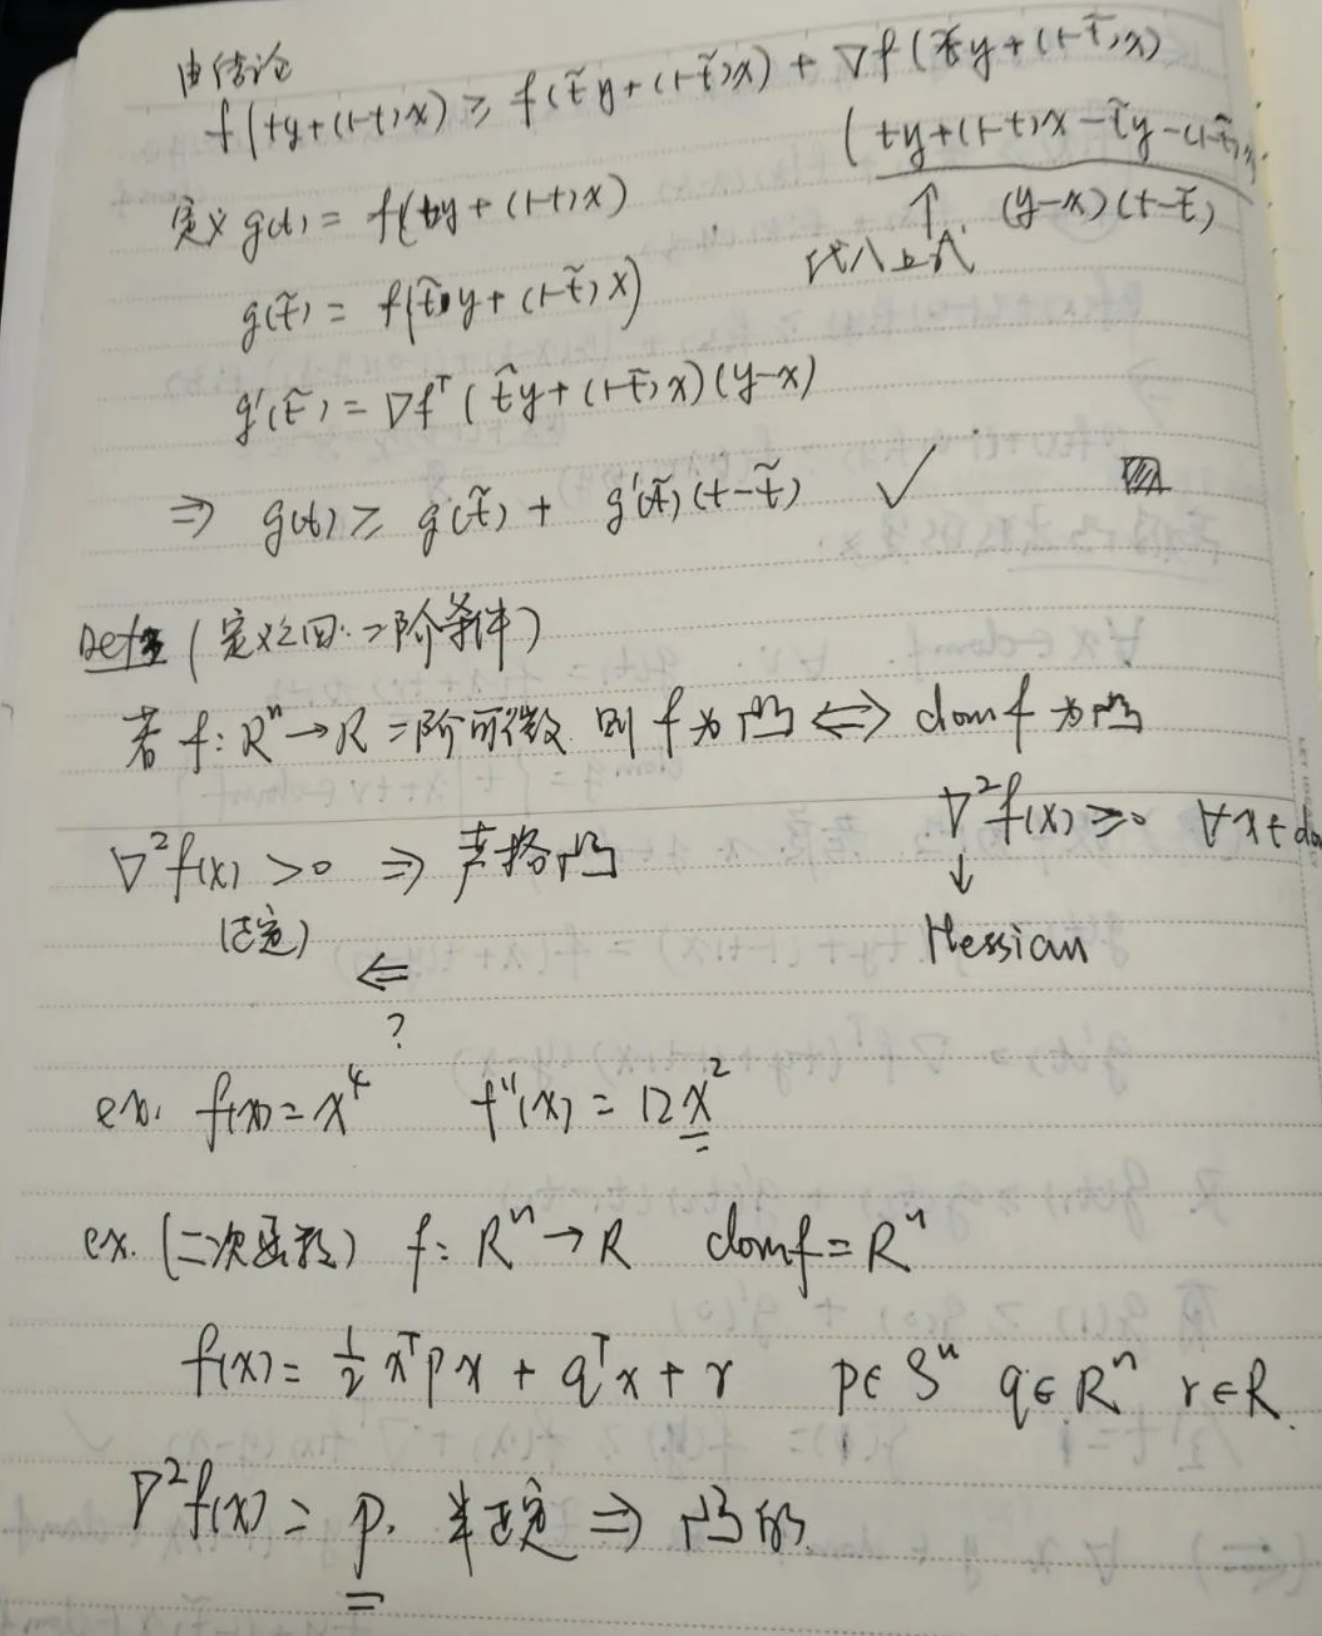 由结论
f(ty+(1-t)x) ≥ f(t̃y+(1-t̃)x) + ∇f(t̃y+(1-t̃)x)
(ty+(1-t)x-t̃y-(1-t̃)x)
定义 g(t) = f(ty+(1-t)x) ↑ (y-x)(t-t̃)
代入上式
g(t̃) = f(t̃y+(1-t̃)x)
g'(t̃) = ∇fᵀ(t̃y+(1-t̃)x)(y-x)
⇒ g(t) ≥ g(t̃) + g'(t̃)(t-t̃) ✓
Def (定义之四:二阶条件)
若 f: Rⁿ→R 二阶可微 则 f 为凸 ⇔ dom f 为凸
∇²f(x) ≥ 0 ∀x∈do
∇²f(x) > 0 ⇒ 严格凸 ↓
(正定) Hessian
⇐
?
ex. f(x) = x⁴ f''(x) = 12x²
ex. (二次函数) f: Rⁿ→R domf = Rⁿ
f(x) = ½xᵀPx + qᵀx + r P∈Sⁿ q∈Rⁿ r∈R.
∇²f(x) = P. 半正定 ⇒ 凸的.